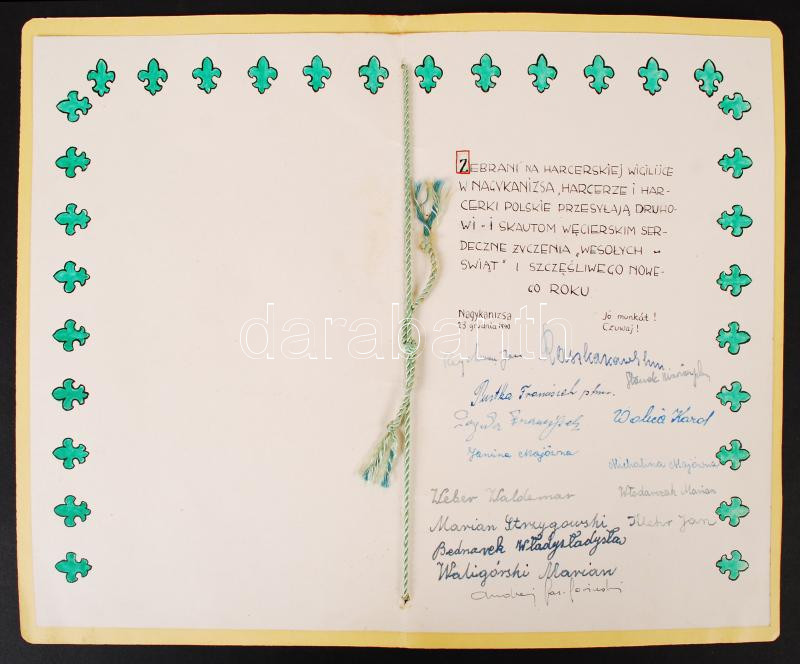 ZEBRANI NA HARCERSKIEJ WIGILIJCE
W NAGYKANIZSA, HARCERZE I HAR-
CERKI POLSKIE PRZESYŁAJĄ DRUHO-
WI - I SKAUTOM WĘGIERSKIM SER-
DECZNE ZYCZENIA „WESOŁYCH -
ŚWIĄT" I SZCZĘŚLIWEGO NOWE-
GO ROKU
Nagykanizsa
23 grudnia 1940
Jó munkát!
Czuwaj!
darabanth
Jan Raszkakowski
Rustka Franciszek phm.
Wolica Karol
Janina Majówna
Michalina Majówna
Weber Waldemar
Włodarczak Marian
Marian Strzygowski
Klehr Jan
Bednarek Władysładysła
Waligórski Marian
Andrzej